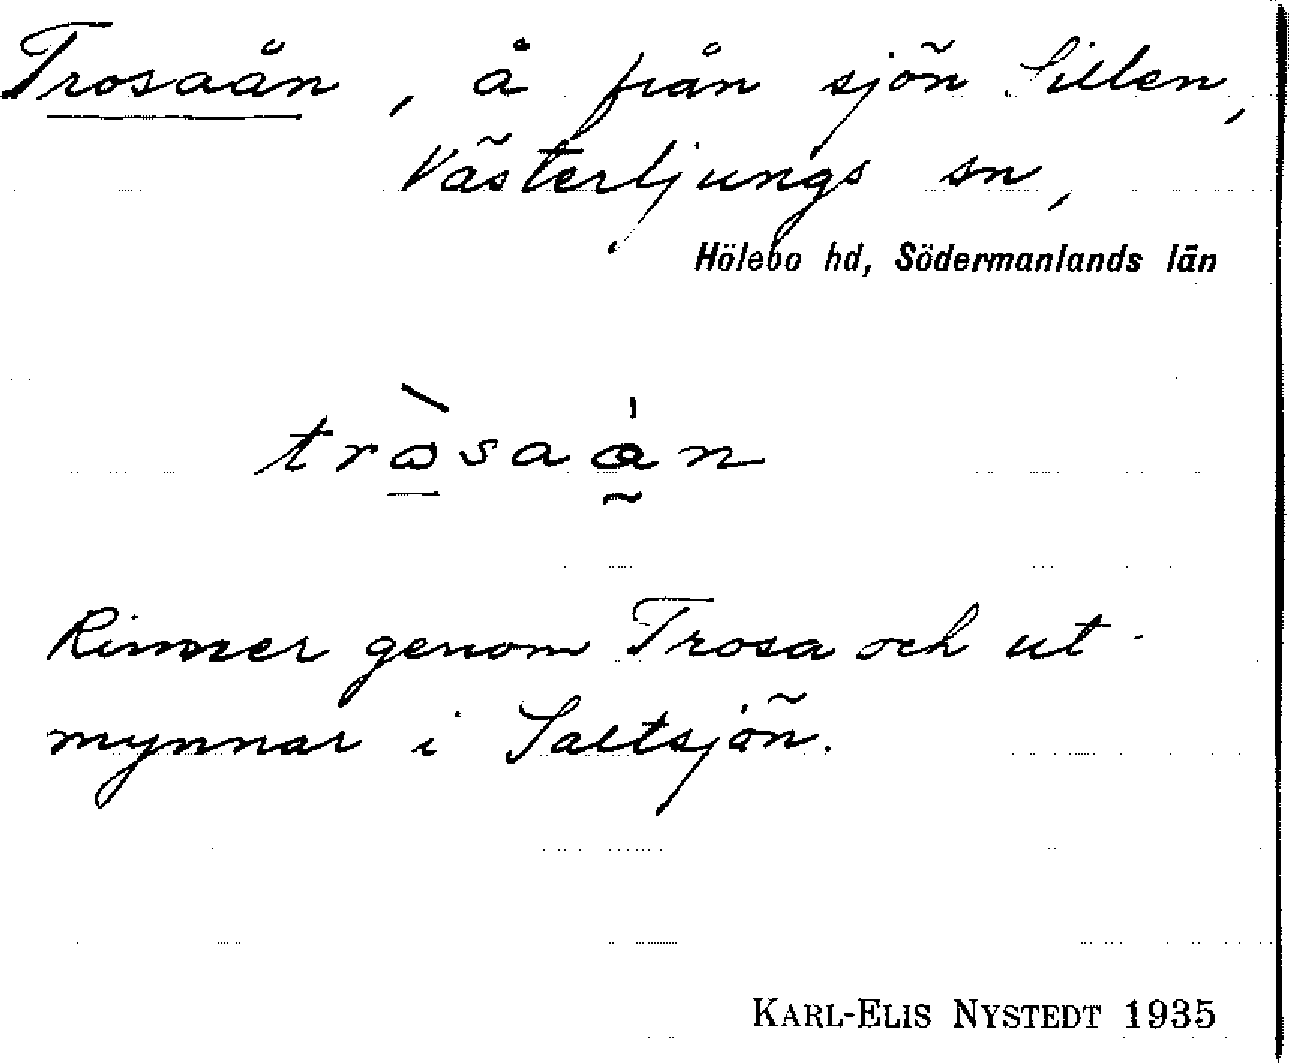 Trosaån, å från sjön Sillen,
Västerljungs sn,
Hölebo hd, Södermanlands län
tròsaån
Rinner genom Trosa och ut-
mynnar i Saltsjön.
KARL-ELIS NYSTEDT 1935